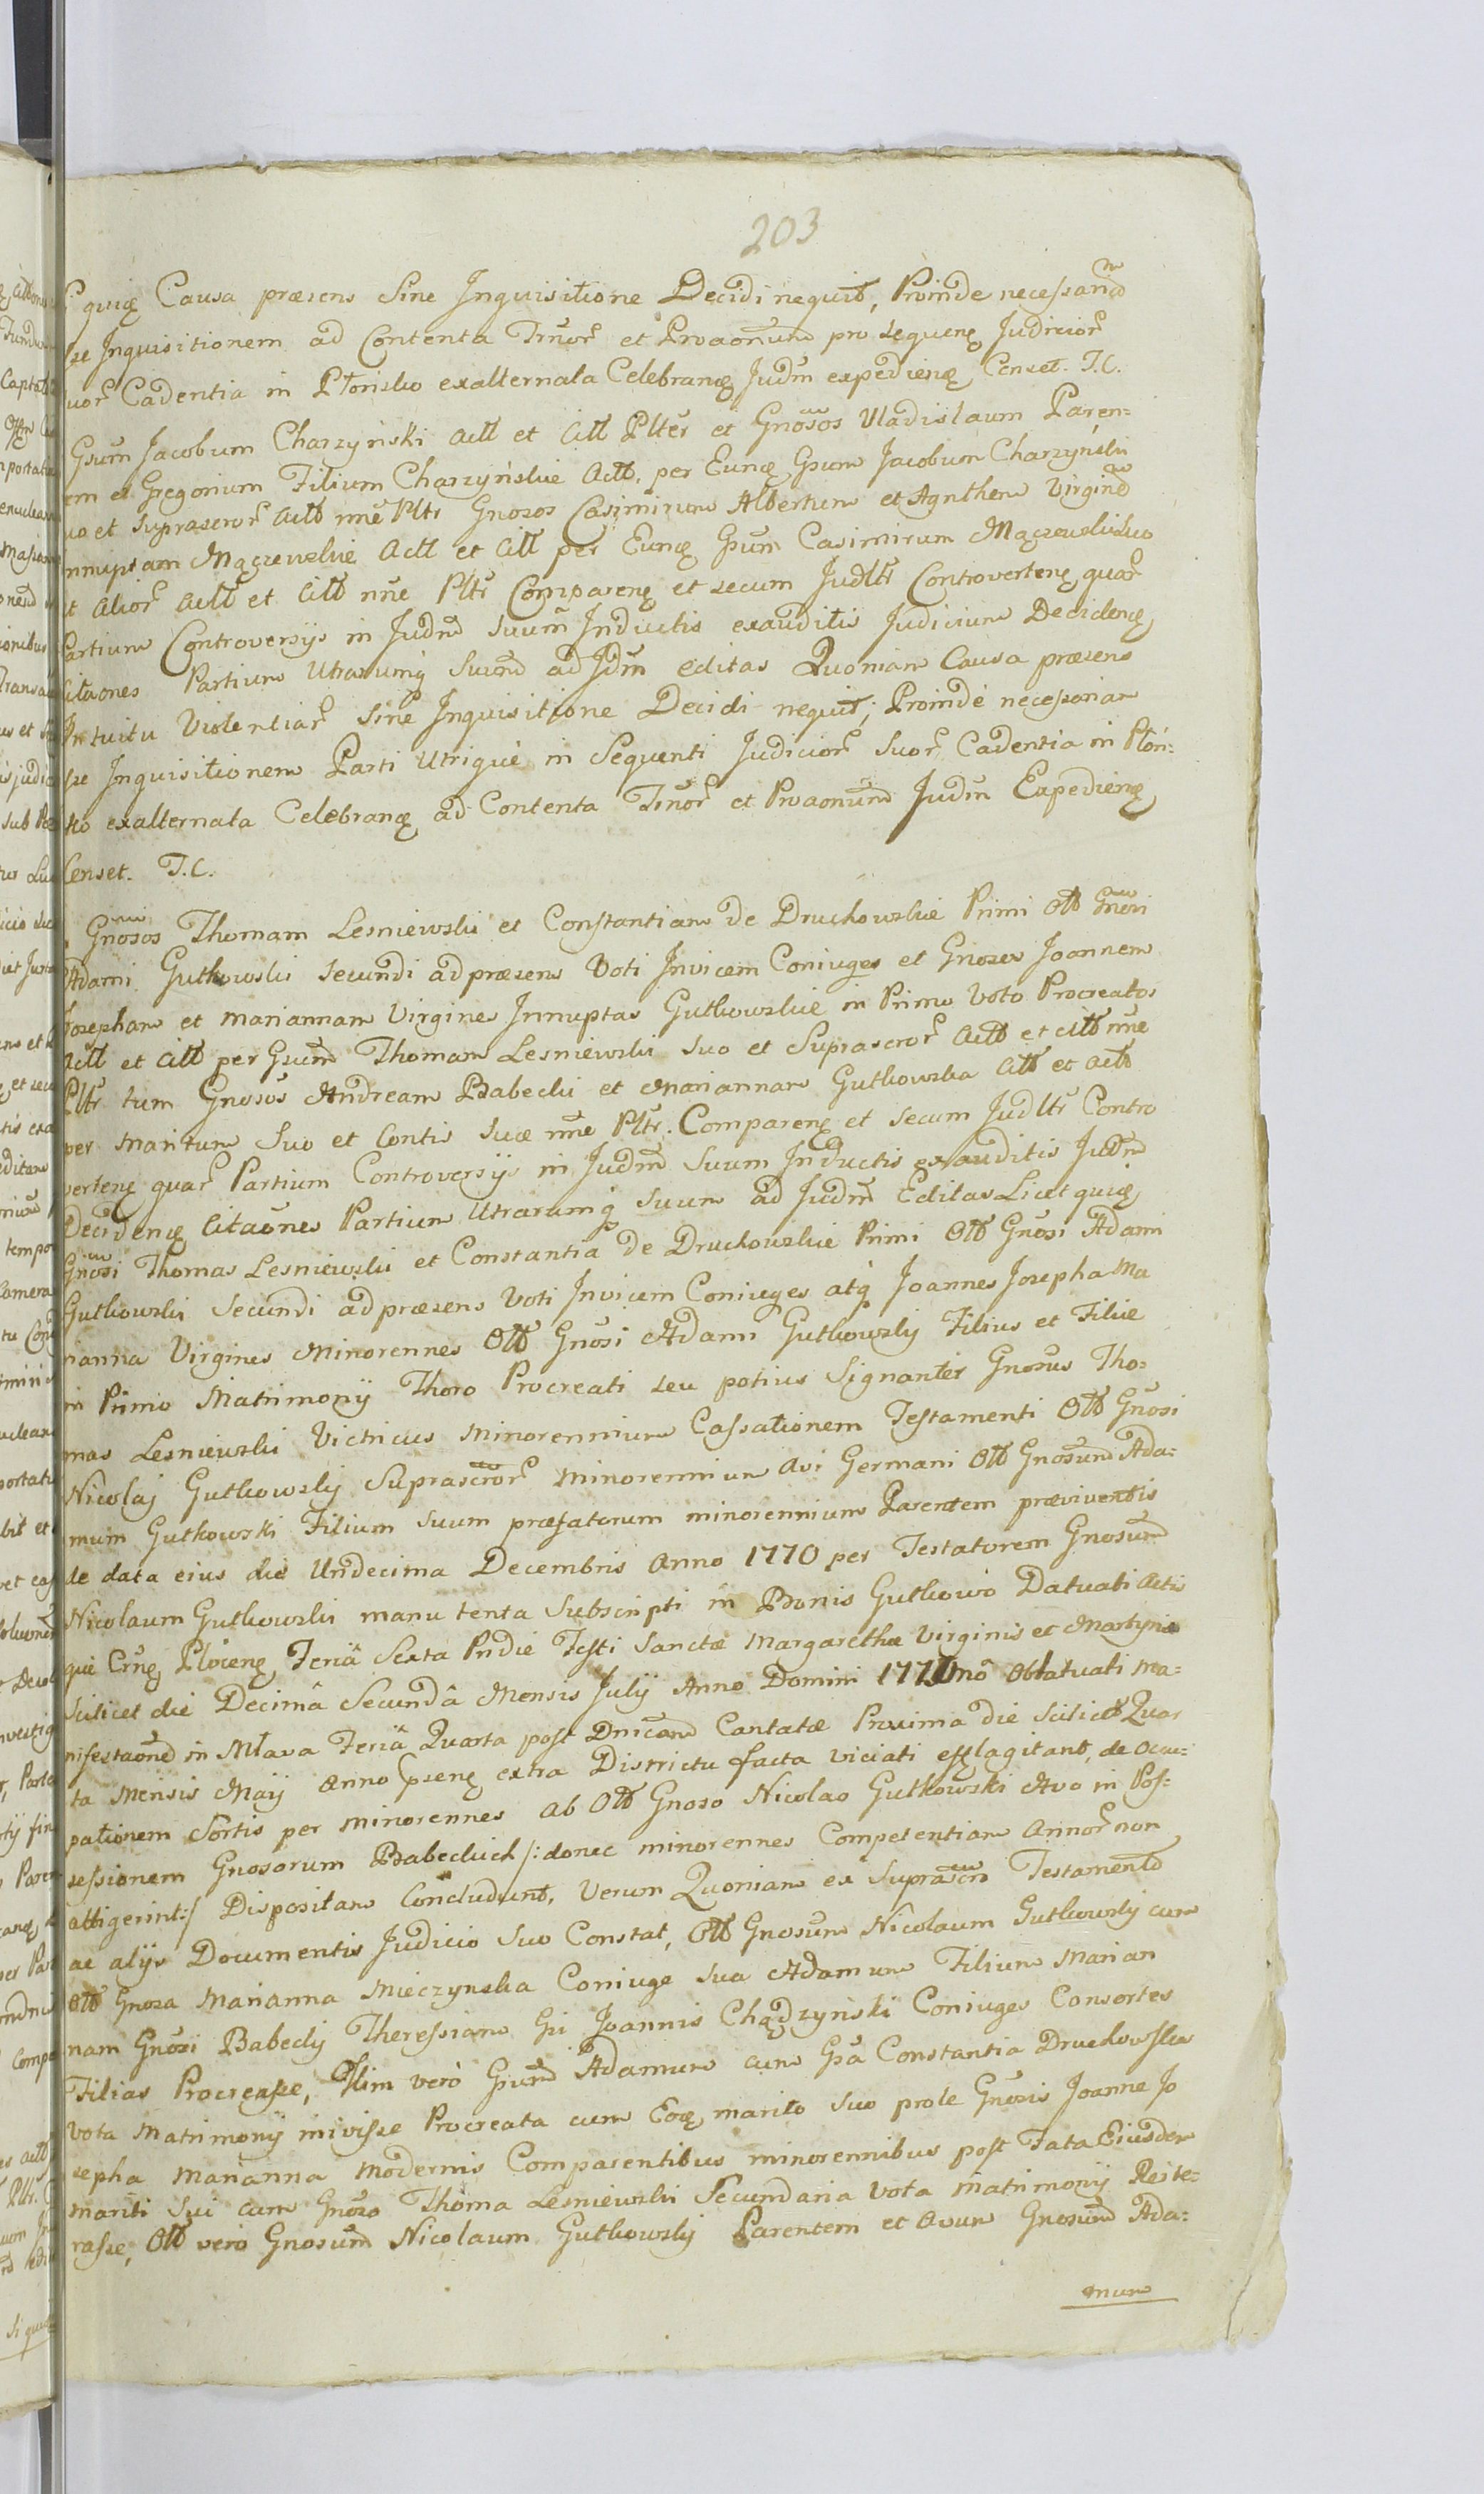 203
quidę Causa præsens Sine Inquisitione Decidi nequit, Proinde necessaria
sse Inquisitionem ad Contenta Tmor et Prvaonum pro sequenę Judicior
uor Cadentia in Płońsko exalternata Celebranę Judm expedienę Censet. T.C.
Gsum Jacobum Charzyński actt et citt Plter et Gnosos Vladislaum Paren=
em et Gregorium Filium Charzyńskie actt. per Eunę Gsum Jacobum Charzyński
uo et suprascror actt nne Pltr Gnosos Casimirum Albertum et Agnthem Virgine
nnuptam Mączewskie Actt et Citt per Eunę Gsum Casimirum Mączewski suo
t alior actt et Citt nne Pltr Comparenę et secum Judltr Controvertenę quar
Partium Controversijs in Judm suum Inductis exauditis Judicium Decidenę
Citaones Partium Utrarumq suum ad Jdm editas Quoniam Causa præsens
Intuitu Violentiar Sine Inquisitione Decidi nequit; Proinde necessariam
sse Inquisitionem Parti Utrique in Sequenti Judicior Suor Cadentia in Płoń=
sko exalternata Celebranę ad Contenta Tmor et Prvaonum Judm Expedienę
Censet. T.C.
Gnosos Thomam Lesniewski et Constantiam de Druchowskie Primi Ott Gnosi
Adami Gutkowski secundi ad præsens Voti Invicem Coniuges et Gnosos Joannem
Josepham et Mariannam Virgines Innuptas Gutkowskie in Primo Voto Procreatos
actt et citt per Gsum Thomam Lesniewski suo et Suprascror actt et citt nne
Pltr tum Gnosos Andream Babecki et Mariannam Gutkowska citt et actt
per Maritum Suo et Contis suæ nne Pltr. Comparenę et secum Judltr Contro
vertenę quar Partium Controversijs in Judm Suum Inductis exauditis Judm
Decidenę Citaones Partium Utrarumq suum ad Judm Editas Licet quidę
Gnosi Thomas Lesniewski et Constantia de Druchowskie Primi Ott Gnosi Adami
Gutkowski Secundi ad præsens Voti Invicem Coniuges atq Joannes Josepha Ma
rianna Virgines Minorennes Ott Gnosi Adami Gutkowskij Filius et Filiæ
in Primo Matrimonij Thoro Procreati seu potius Signanter Gnosus Tho=
mas Lesniewski Victricus Minorennium Cassationem Testamenti Ott Gnosi
Nicolaj Gutkowskij Suprascror Minorennium Avi Germani Ott Gnosum Ada=
mum Gutkowski Filium suum præfatorum minorennium Parentem præviventis
de data eius die Undecima Decembris Anno 1770 per Testatorem Gnosum
Nicolaum Gutkowski manu tenta Subscripti in Bonis Gutkowo Datuati Actis
que Crnę Plocenę Feria Sexta Pridie Festi Sanctæ Margarethæ Virginis et Martyris
Scilicet die Decimâ Secundâ Mensis Julij Anno Domini 1771mo Oblatuati Ma=
nifestaone in Mława Feriâ Quarta post Dnicam Cantatæ Proxima die Scilicet Quar
ta Mensis Maij Anno psenę extra Districtu facta viciati efflagitant, de occu=
pationem Sortis per minorennes ab Ott Gnoso Nicolao Gutkowski Avo in Pos=
sessionem Gnosorum Babeckich /: donec minorennes Competentiam annor non
attigerint:/ Dispositam Concludunt, Verum Quoniam ex Suprascro Testamento
ac alijs Documentis Judicio Suo Constat, Ott Gnosum Nicolaum Gutkowskij cum
Ott Gnosa Marianna Mieczynska Coniuge sua Adamum Filium Marian
nam Gnosi Babeckij Theressiam Gsi Joannis Chądzyński Coniuges Consortes
Filias Procreasse, Olim vero Gsum Adamum cum Gsa Constantia Druchowska
Vota Matrimonij inivisse Procreata cum Eoę marito Suo prole Gnosis Joanne Jo
sepha Marianna Modernis Comparentibus minorennibus post Fata Eiusdem
mariti Sui cum Gnoso Thoma Lesniewski Secundaria Vota Matrimonij Reite=
rasse, Ott vero Gnosum Nicolaum Gutkowskij Parentem et Avum Gnosum Ada=
mum